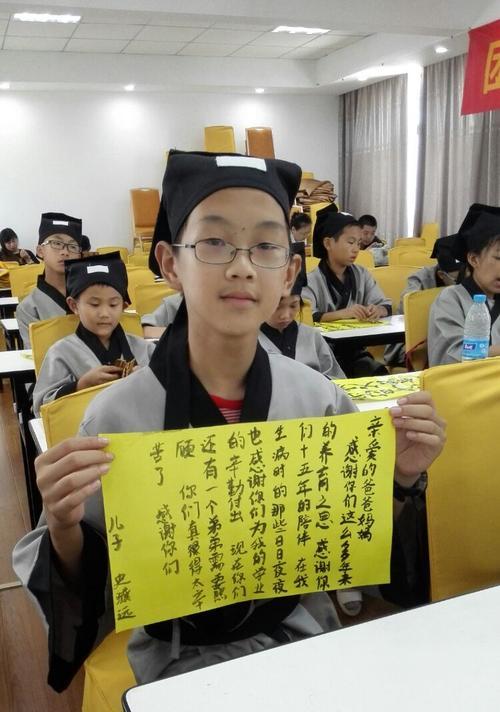 亲爱的爸爸妈妈
感谢你们这么多年来
的养育之恩 感谢你
们十五年的陪伴 在我
生病时的那些日日夜夜
也感谢你们为我的学业
的辛勤付出 现在你们
还有一个弟弟需要照
顾 你们真很得太辛
苦了 感谢你们
儿子 史 远
团